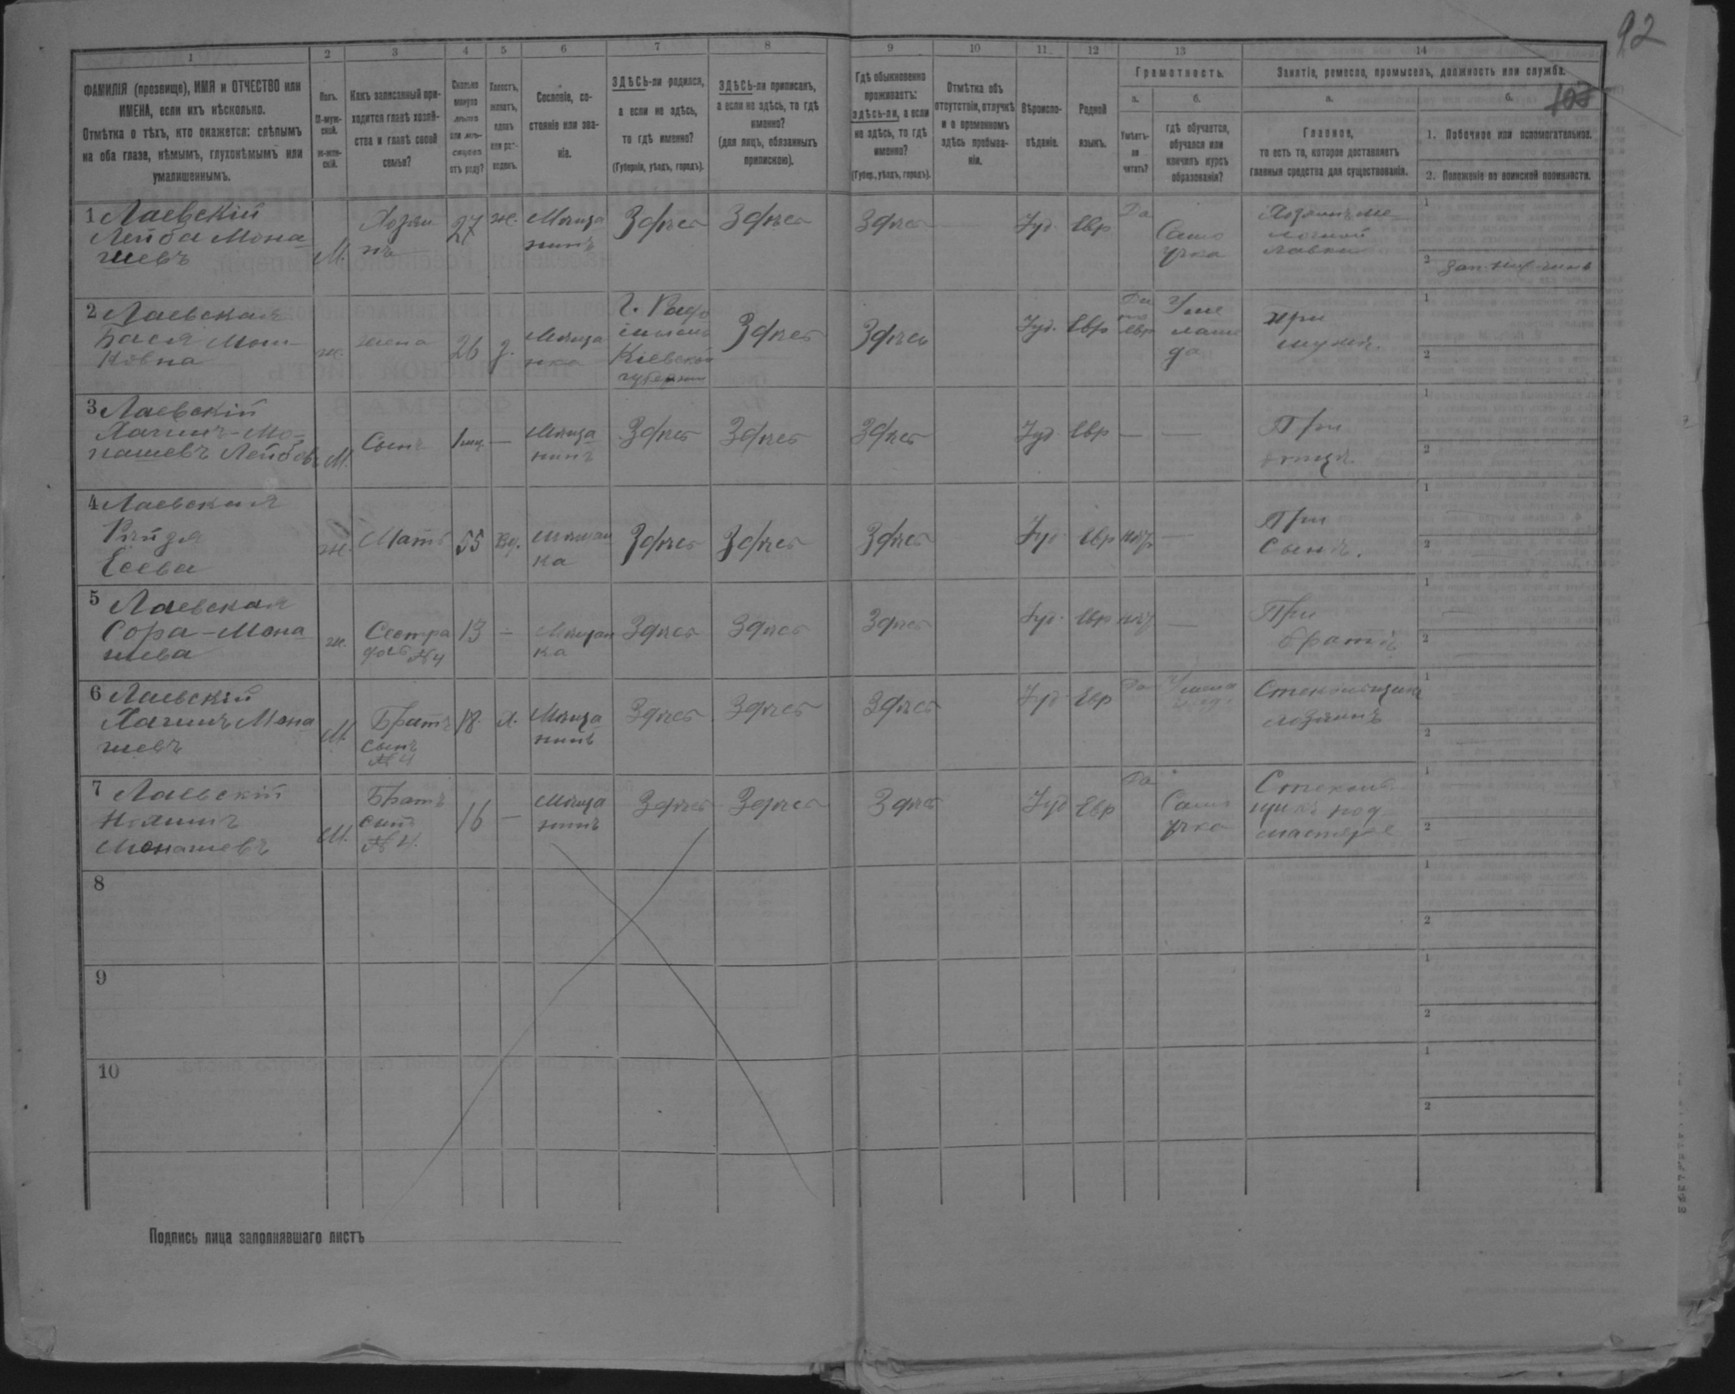 92
108
1 2 3 4 5 6 7 8 9 10 11 12 13 14
ФАМИЛІЯ (прозвище), ИМЯ и ОТЧЕСТВО или
ИМЕНА, если ихъ нѣсколько.
Отмѣтка о тѣхъ, кто окажется: слѣпымъ
на оба глаза, нѣмымъ, глухонѣмымъ или
умалишеннымъ.
Полъ.
М-муж-
ской.
ж-жен-
скій.
Какъ записанный при-
ходится главѣ хозяй-
ства и главѣ своей
семьи?
Сколько
минуло
лѣтъ
или мѣ-
сяцевъ
отъ роду?
Холостъ,
женатъ,
вдовъ
или раз-
веденъ.
Сословіе, со-
стояніе или зва-
ніе.
ЗДѢСЬ-ли родился,
а если не здѣсь,
то гдѣ именно?
(Губернія, уѣздъ, городъ).
ЗДѢСЬ-ли приписанъ,
а если не здѣсь, то гдѣ
именно?
(для лицъ, обязанныхъ
припискою).
Гдѣ обыкновенно
проживаетъ:
здѣсь-ли, а если
не здѣсь, то гдѣ
именно?
(Губер., уѣздъ, городъ).
Отмѣтка объ
отсутствіи, отлучкѣ
и о временномъ
здѣсь пребыва-
ніи.
Вѣроиспо-
вѣданіе.
Родной
языкъ.
Грамотность.
а.
Умѣетъ-
ли
читать?
б.
гдѣ обучается,
обучался или
кончилъ курсъ
образованія?
Занятіе, ремесло, промыселъ, должность или служба.
а.
Главное,
то есть то, которое доставляетъ
главныя средства для существованія.
б.
1. Побочное или вспомогательное.
2. Положеніе по воинской повинности.
1 Лаевскій
Лейба Мона
шевъ
М.
Хозяи
нъ
27
ж.
Мѣща
нинъ
Здѣсь
Здѣсь
Здѣсь
Іуд.
Евр
Да
Само
учка
Хозяинъ ме
лочной
лавки
1
2
2 Лаевская
Бася Мош
ковна
ж.
жена
26
з.
Мѣща
нка
Г. Радо
мысль
Кіевской
губерніи
Здѣсь
Здѣсь
Іуд.
Евр
Да
по
евр
У ме
ламе
да
при
мужѣ.
1
2
3 Лаевскій
Хаимъ-Мо-
нашевъ Лейбовъ
М.
Сынъ
1 мц.
—
Мѣща
нинъ
Здѣсь
Здѣсь
Здѣсь
Іуд
Евр
—
—
При
отцѣ
1
2
4 Лаевская
Рейзя
Есева
ж.
Мать
55
Вд.
Мѣщан
ка
Здѣсь
Здѣсь
Здѣсь
Іуд
Евр
нѣт
—
При
сынѣ.
1
2
5 Лаевская
Сора-Мона
шева
ж.
Сестра
дочь №4
13
—
Мѣщан
ка
Здѣсь
Здѣсь
Здѣсь
Іуд.
Евр
нѣт
—
При
братѣ
1
2
6 Лаевскій
Хаимъ Мона
шевъ
М.
Братъ
сынъ
№4
18
х.
Мѣща
нинъ
Здѣсь
Здѣсь
Здѣсь
Іуд
Евр
Да
Стекольщикъ
хозяинъ
1
2
7 Лаевскій
Монашевъ
М.
Братъ
сынъ
№4.
16
—
Мѣща
нинъ
Здѣсь
Здѣсь
Здѣсь
Іуд
Евр
Да
Само
учка
Стеколь
щикъ под
мастерье
1
2
8
1
2
9
1
2
10
1
2
Подпись лица заполнявшаго листъ